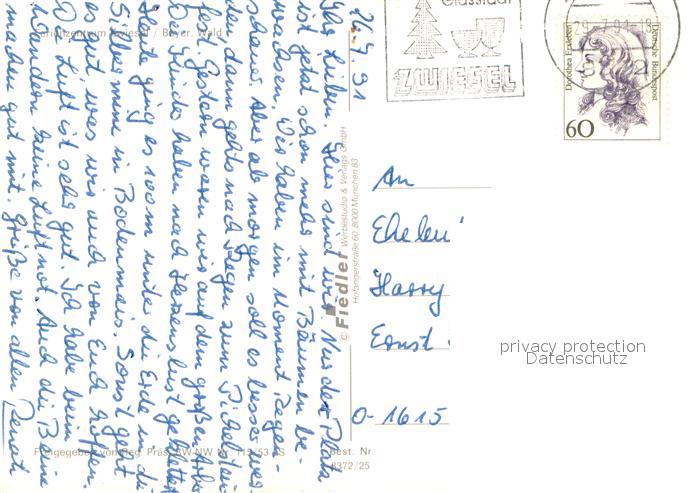 26.7.91
Ihr Lieben. Hier sind wir. Nur der Platz
ist jetzt schon mehr mit Bäumen be-
wachsen. Wir haben im Moment Regen-
schauer. Aber ab morgen soll es besser wer-
den, dann gehts nach Regen zum Pichelstein
fest. Gestern waren wir auf dem großen Arber
Die Kinder haben nach Herzenslust geklettert
Heute ging es 100m unter die Erde in die
Silbermine in Bodenmais. Sonst geht
es gut was wir auch von Euch hoffen.
Die Luft ist sehr gut. Ich habe beim
Wandern keine Luftnot. Auch die Beine
machen gut mit. Grüße von allen Renat
Zwiesel / Bayer. Wald
Freigegeben von Reg. Präs.
Best. Nr.
8372/25
© Fiedler Werbestudio & Verlags GmbH
Hofangerstraße 60, 8000 München 83
Glasstadt
ZWIESEL
29.-7.91-18
Dorothea Erxleben
Deutsche Bundespost
60
An
Ehel
Harry
Ernst
O-1615
privacy protection
Datenschutz